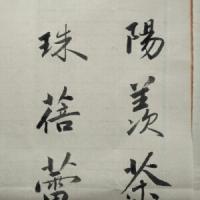 陽羨茶
珠蓓蕾